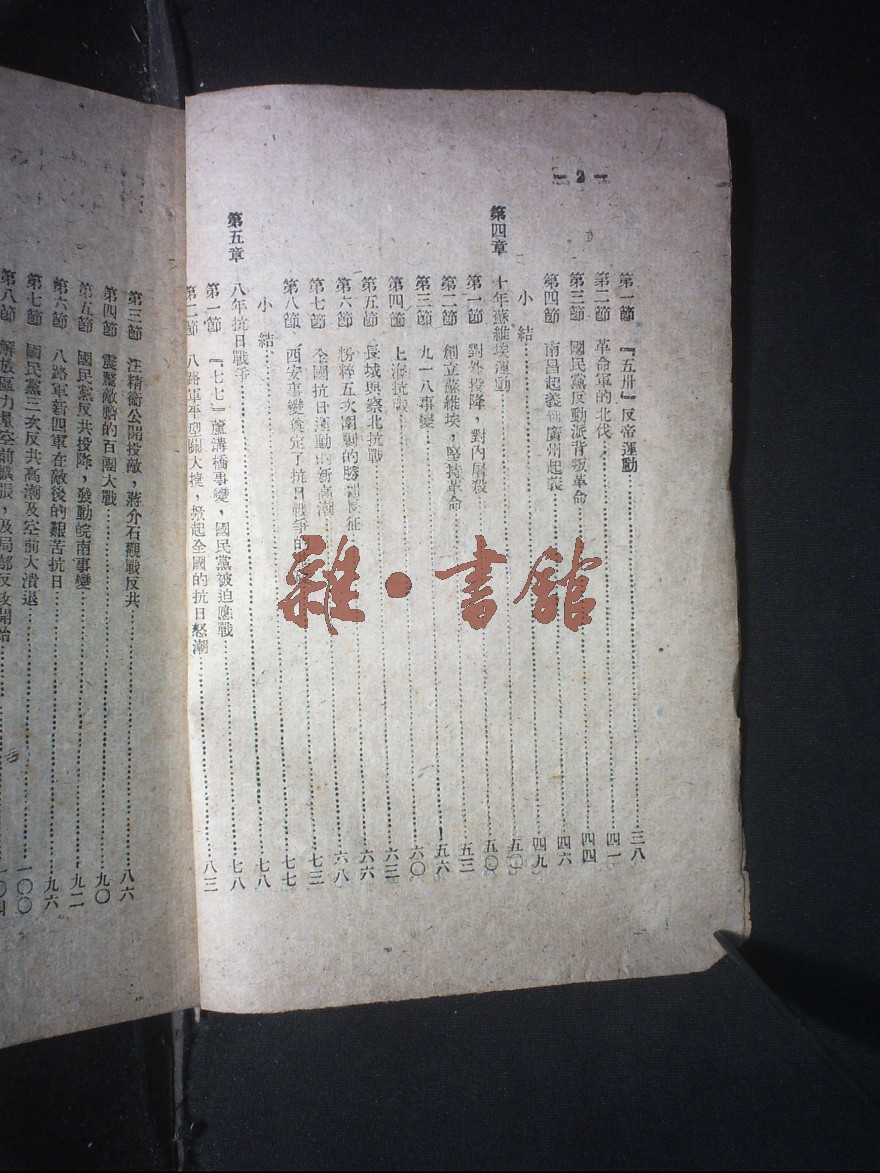 — 2 —
第一節 『五卅』反帝運動……三八
第二節 革命軍的北伐……四一
第三節 國民黨反動派背叛革命……四四
第四節 南昌起義和廣州起義……四六
小結……四九
第四章 十年蘇維埃運動……五〇
第一節 對外投降,對內屠殺……五〇
第二節 創立蘇維埃,堅持革命……五三
第三節 九一八事變……五六
第四節 上海抗戰……六〇
第五節 長城與察北抗戰……六三
第六節 粉粹五次圍剿的勝利長征……六六
第七節 全國抗日運動的新高潮……六八
第八節 西安事變奠定了抗日戰爭的……七三
小結……七七
第五章 八年抗日戰爭……七八
第一節 『七七』蘆溝橋事變,國民黨被迫應戰……七八
第二節 八路軍平型關大捷,掀起全國的抗日怒潮……八三
第三節 汪精衛公開投敵,蔣介石觀戰反共……八六
第四節 震驚敵膽的百團大戰……九〇
第五節 國民黨反共投降,發動皖南事變……九二
第六節 八路軍新四軍在敵後的艱苦抗日……九六
第七節 國民黨三次反共高潮及空前大潰退……一〇〇
第八節 解放區力量空前擴張,及局部反攻開始……一〇四
雜·書館